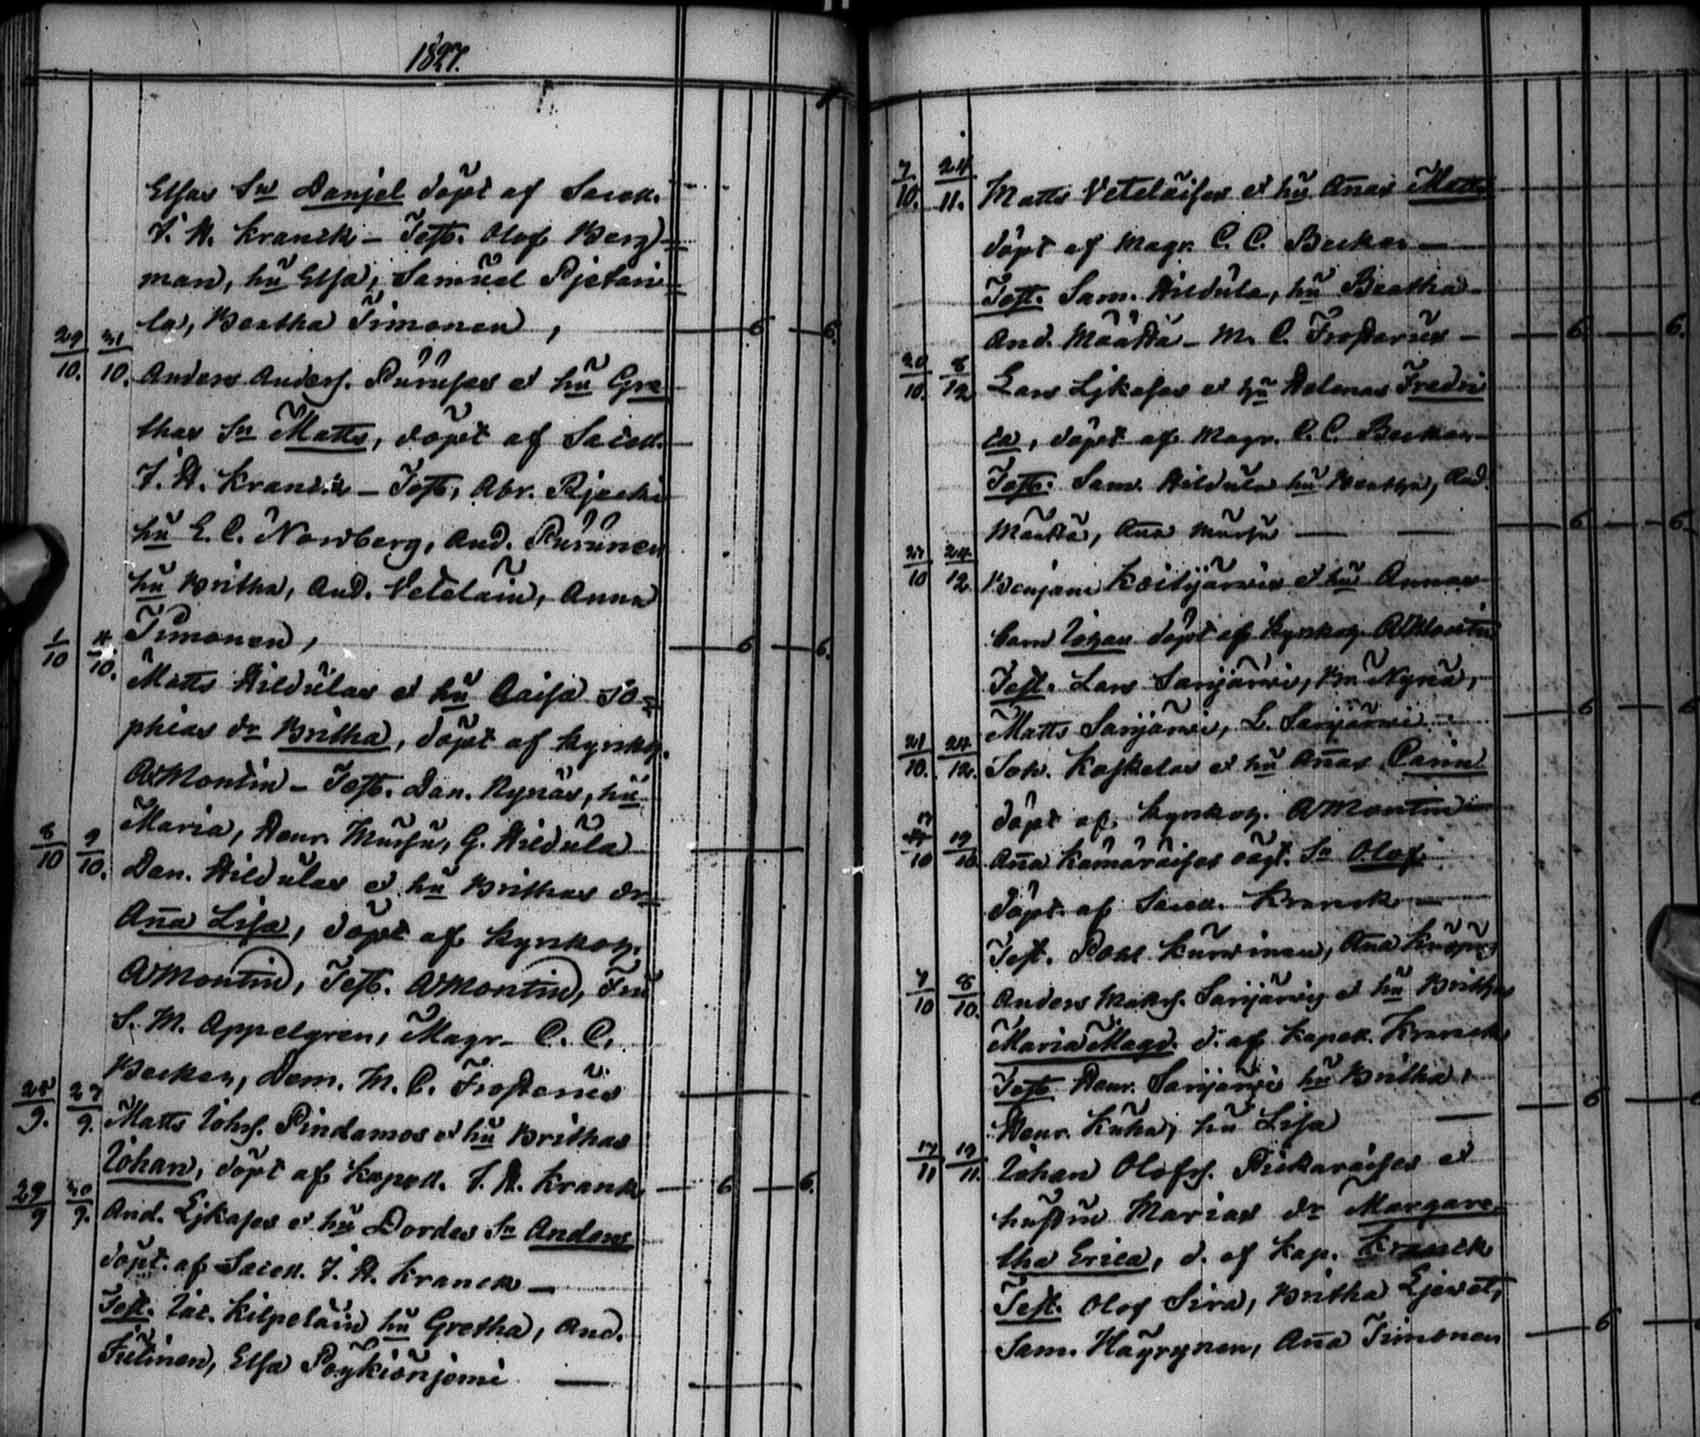 1827.
Elsas Sn Danjel döpt af Sacell.
J. H. Kranck - Test. Olof Berg
man, hu Elsa, Samuel Pjetari
la, Beatha Timonen, 6 6
29/10. 31/10. Anders Anders. Purunses et hu Gre
thas Sn Matts, döpt af Sacell.
J. H. Kranck - Test. Abr. Pjecki
hu E. C. Nordberg, And. Puruinen
hu Britha, And. Vetelain, Anna
Timonen, 6 6.
1/10 4/10. Matts Hildulas et hu Caisa So=
phias dr Britha, döpt af Kyrkoh.
AMontin - Test. Dan. Rynäs, hu
Maria, Henr. Mursu, G. Hildula
8/10 9/10. Dan. Hildulas et hu Brithas dr
Aña Lisa, döpt af Kyrkoh.
AMontin, Test. AMontin, Fru
S. M. Appelgren, Magr. C. C.
Becker, Dem. M. C. Frosterus
25/9. 27/9. Matts Johs. Pindamos et hu Brithas
Johan, döpt af Kapell. J. H. Kranck 6 6.
29/9 30/9. And. Ljkases et hu Dordes Sn Anders
döpt. af Sacell. J. H. Kranck -
Test. Jac. Kilpeläin hu Gretha, And.
Elsa Pöykiönjemi
7/10. 24/11. Matts Veteläises et hu Añas Matts
döpt af Magr. C. C. Becker -
Test. Sam. Hildula, hu Beatha
And. Määttä - M. C. Frosterus - 6 6.
20/10. 8/12 Lars Ljkases et hu Helenas Fredri
ca, döpt af Magr. C. C. Becker
Test. Sam. Hildula hu Beatha, And.
Määttä, Aña Mursu 6 6
24/12. Benjam Koitijärvis et hu Annas
barn Johan döpt af Kyrkoh. AMontin
Test. Lars Sarijärvi, Nynä,
Matts Sarijärvi, L. Sarijärvi 6 6
21/10. 24/12. Joh. Koskelas et hu Añas Carin
döpt af Kyrkoh. AMontin
19/10 Aña Kämäräises oägt. Sn Olof
döpt. af Sacell. Kranck
Test. Påhl Kurvinen, Aña
7/10 8/10. Anders Matss. Sarijärvis et hu Brithas
Maria Magd. d. af Kapell. Kranck
Test. Henr. Sarijärvi hu Britha,
Henr. Kuha, hu Lisa 6
17/11 19/11. Johan Olofs. Piekaräises et
hustru Marias dr Margare=
tha Erica, d. af Kap. Kranck
Test. Olof Sirva, Britha Ljevet,
Sam. Häyrynen, Aña Timonen 6